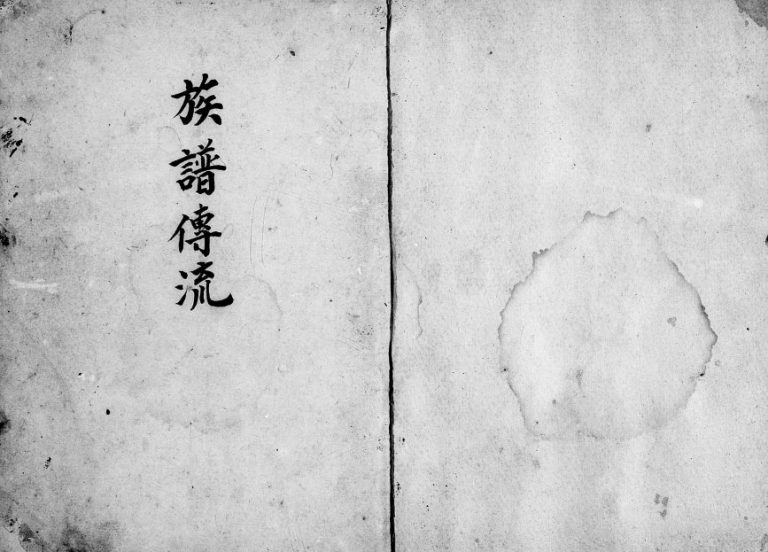 族譜傳流